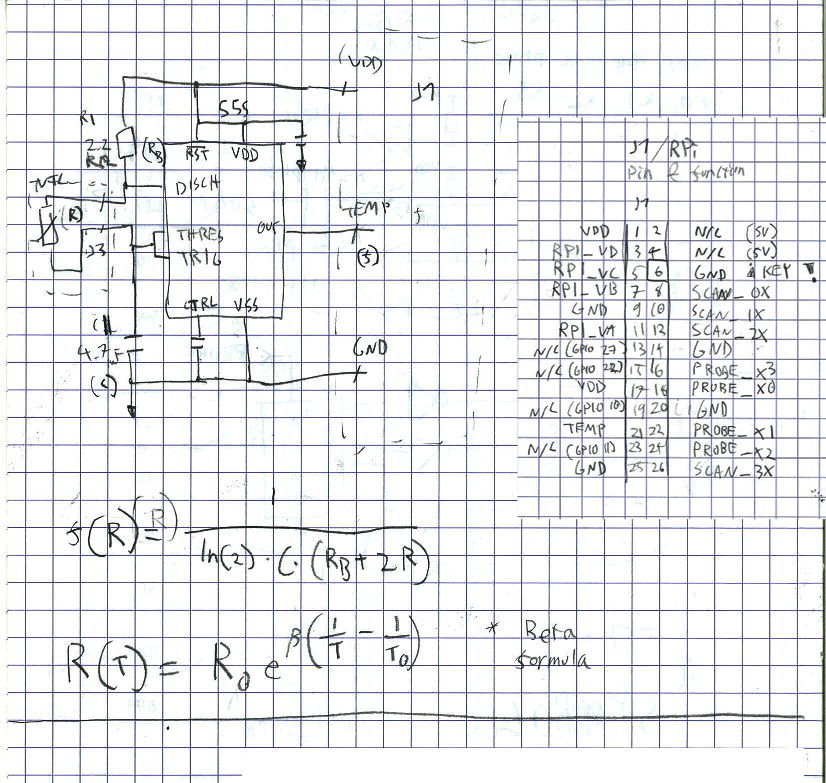 VDD
J1
555
R1
2.2
(RB)
RST VDD
DISCH
(R)
J3
THRES
TRIG
OUT
TEMP
f
(f)
CTRL VSS
C1
4.7
(C)
GND
J1/RPi
Pin & function
J1
VDD 1 2 N/C (5V)
RPI_VD 3 4 N/C (5V)
RPI_VC 5 6 GND & KEY !
RPI_VB 7 8 SCAN_0X
GND 9 10 SCAN_1X
RPI_VA 11 12 SCAN_2X
N/C (GPIO 27) 13 14 GND
N/C (GPIO 22) 15 16 PROBE_X3
VDD 17 18 PROBE_X0
N/C (GPIO 10) 19 20 GND
TEMP 21 22 PROBE_X1
N/C (GPIO 11) 23 24 PROBE_X2
GND 25 26 SCAN_3X
f(R) = 1 / ln(2) · C · (RB + 2R)
R(T) = R0 e^β(1/T - 1/T0)
* Beta
formula